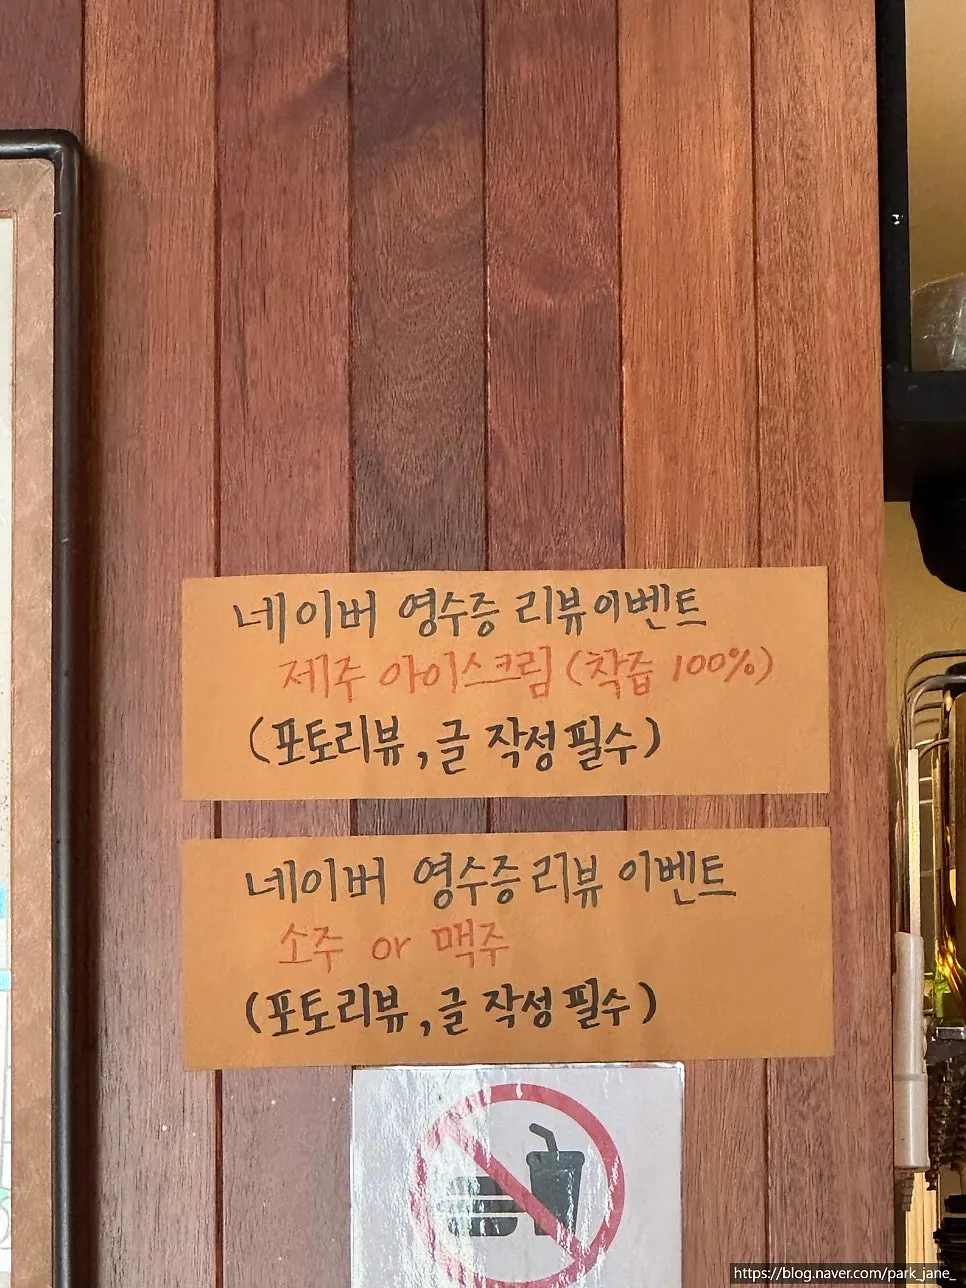 네이버 영수증 리뷰이벤트
제주 아이스크림 (착즙 100%)
(포토리뷰, 글 작성 필수)
네이버 영수증 리뷰 이벤트
소주 or 맥주
(포토리뷰, 글 작성 필수)
https://blog.naver.com/park_jane_